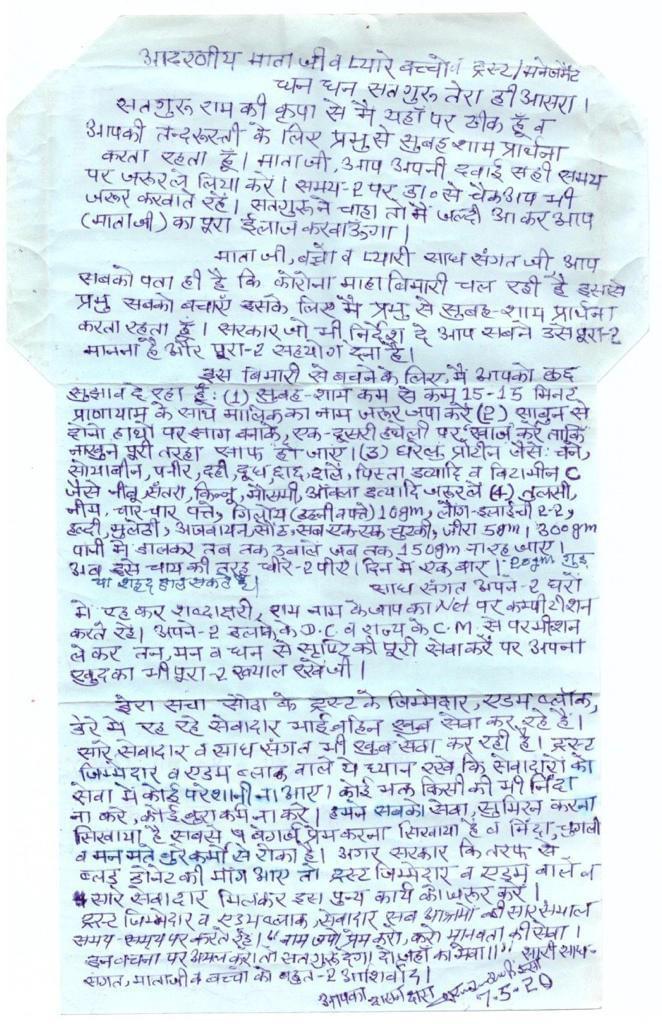 आदरणीय माता जी व प्यारे बच्चों, ट्रस्ट/मनेजमैंट
धन धन सतगुरु तेरा ही आसरा।
सतगुरु राम की कृपा से मैं यहाँ पर ठीक हूँ व
आपकी तन्दरूस्ती के लिए प्रभु से सुबह शाम प्रार्थना
करता रहता हूँ। माताजी, आप अपनी दवाई सही समय
पर जरूर ले लिया करें। समय-2 पर डा॰ से चैकअप भी
जरूर करवाते रहें। सतगुरु ने चाहा तो मैं जल्दी आ कर आप
(माताजी) का पूरा ईलाज करवाऊंगा।
माता जी, बच्चों व प्यारी साध संगत जी, आप
सबको पता ही है कि कोरोना माहा बिमारी चल रही है इससे
प्रभु सबको बचाएं इसके लिए मैं प्रभु से सुबह-शाम प्रार्थना
करता रहता हूँ। सरकार जो भी निर्देश दे आप सबने उसे पूरा-2
मानना है और पूरा-2 सहयोग देना है।
इस बिमारी से बचने के लिए, मैं आपको कुछ
सुझाव दे रहा हूँ: (1) सुबह-शाम कम से कम 15-15 मिनट
प्राणायाम के साथ मालिक का नाम जरूर जपा करें (2) साबुन से
दोनो हाथों पर झाग बनाके, एक-दूसरी हथेली पर, खाज करें ताकि
नाखुन पूरी तरहा साफ हो जाएं। (3) घरेलू प्रोटीन जैसे: चने,
सोयाबीन, पनीर, दही, दूध, छाछ, दालें, पिस्ता इत्यादि व विटामीन C
जैसे नीबू, संतरा, किन्नू, मौसमी, आँवला इत्यादि जरूर लें (4) तुलसी,
नीम, चार-चार पत्ते, गिलोय (डंडी व पत्ते) 10gm, लौंग-इलाईची 2-2,
हल्दी, मुलेठी, अजवायन, सौंठ, सब एक एक चुटकी, जीरा 5gm। 300gm
पानी में डालकर तब तक उबालें जब तक 150gm ना रह जाए।
अब इसे चाय की तरह धीरे-2 पीएं। दिन में एक बार। 20gm गुड़
या शहद डाल सकते हैं।
साध संगत अपने-2 घरों
में रह कर शब्दाक्षरी, राम नाम के जाप का Net पर कम्पीटीशन
करते रहें। अपने-2 इलाके के D.C. व राज्य के C.M. से परमीशन
ले कर तन, मन व धन से सृष्टि की पूरी सेवा करें पर अपना
खुद का भी पूरा-2 ख्याल रखें जी।
डेरा सच्चा सौदा के ट्रस्ट के जिम्मेदार, एडम ब्लॉक,
डेरे में रह रहे सेवादार भाई बहिन खूब सेवा कर रहे हैं।
सारे सेवादार व साध संगत भी खूब सेवा कर रही है। ट्रस्ट
जिम्मेदार व एडम ब्लाक वाले ये ध्यान रखें कि सेवादारों को
सेवा में कोई परेशानी ना आए। कोई भक्त किसी की भी निंदा
ना करे, कोई बुरा कर्म ना करे। हमने सबको सेवा, सुमिरन करना
सिखाया है सबसे बेगर्ज प्रेम करना सिखाया है व निंदा, चुगली
व मन मते बुरे कर्मों से रोका है। अगर सरकार कि तरफ से
ब्लड डोनेट की मांग आए तो ट्रस्ट जिम्मेदार व एडम वाले व
सारे सेवादार मिलकर इस पुन्य कार्य को जरूर करें।
ट्रस्ट जिम्मेदार व एडम ब्लाक, सेवादार सब आश्रमों की सार संभाल
समय-समय पर करते रहें। "नाम जपो, प्रेम करो, करो मानवता की सेवा।
इन वचनों पर अमल करो तो सतगुरु देगा दो जहाँ का मेवा॥" सारी साध-
संगत, माताजी व बच्चों को बहुत-2 आशिर्वाद।
आपका दासन दास
7.5.20